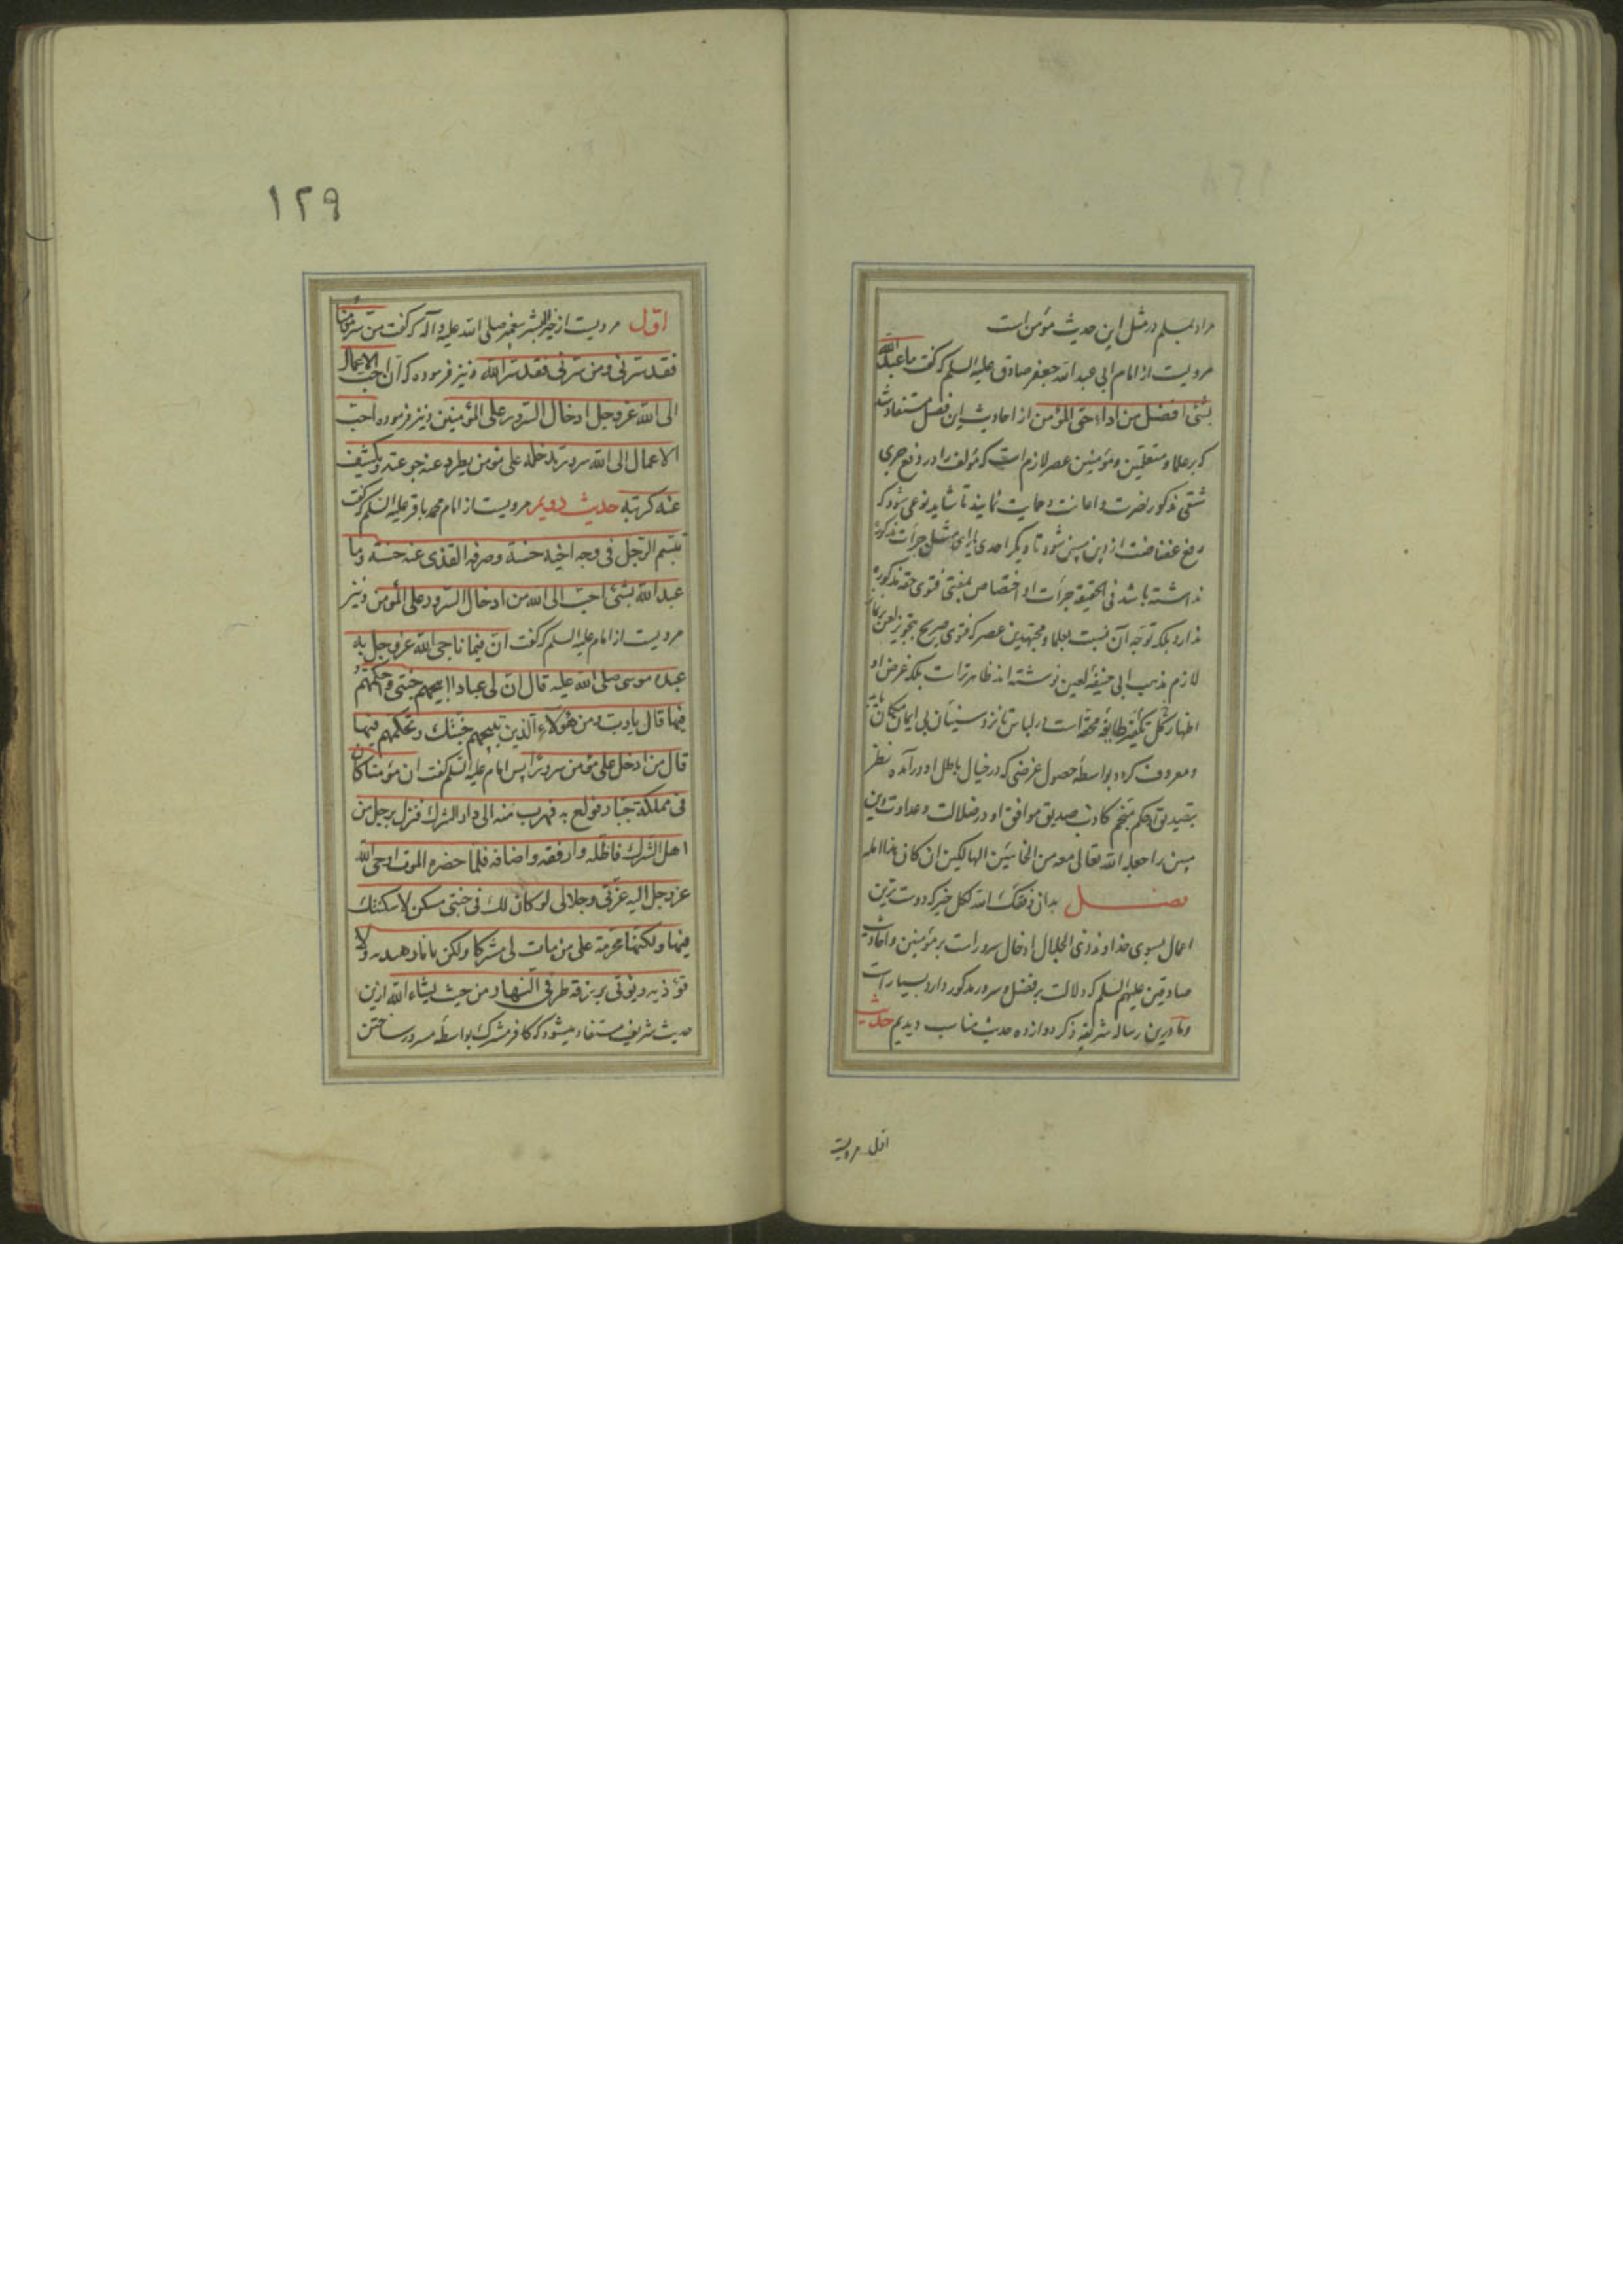 مراد بمسلم در مثل این حدیث مؤمن است
مرویست از امام ابی عبد الله جعفر صادق علیه السلم که گفت ما عبد الله
بشئ افضل من اداء حق المؤمن از احادیث این فصل مستفاد شد
که بر علما و متعلمین و مؤمنین عصر لازم است که مؤلف را در دفع جری
شقی مذکور نصرت و اعانت و حمایت نمایند تا شاید نوعی شود که
رفع از دین مبین شود تا دیگر احدی یارای مثل جرأت مذکوره
نداشته باشد فی الحقیقه جرأت او اختصاص بمفتی فتوی حقه مذکوره
ندارد بلکه توجه آن نسبت بعلما و مجتهدین عصر که فتوی صریح بتجویز لعن
لازم مذهب ابی حنیفه لعین نوشته اند ظاهرتر است بلکه غرض او
اظهار تکفیر طایفه محقه است در لباس تا نزد سنیان بی ایمان
و معروف گردد بواسطه حصول غرضی که در خیال باطل او درآمده نظر
بتصدیق حکم منجم کاذب صدیق موافق او در ضلالت و عداوت دین
مبین را جعله الله تعالی معه من الخائبین الهالکین ان کان هذا اهله
فصل بدان وفقک الله لکل خیر که دوست ترین
اعمال بسوی خداوند ذی الجلال ادخال سرور است بر مؤمنین و احادیث
صادقین علیهم السلم که دلالت بر فضل سرور مذکور دارد بسیار است
و ما درین رساله شریفه ذکر دوازده حدیث مناسب دیدیم حدیث
اول مرویست
١٢٩
اول مرویست از خیر البشر پیغمبر صلی الله علیه و آله که گفت من سر مؤمنا
فقد سرنی و من سرنی فقد سر الله و نیز فرموده که ان احب الاعمال
الی الله عز وجل ادخال السرور علی المؤمنین و نیز فرموده احب
الاعمال الی الله سرور تدخله علی مؤمن یطرد عنه جوعته و یکشف
عنه کربته حدیث دویم مرویست از امام محمد باقر علیه السلم که گفت
تبسم الرجل فی وجه اخیه حسنة وصرفه القذی عنه حسنة وما
عبد الله بشئ احب الی الله من ادخال السرور علی المؤمن و نیز
مرویست از امام علیه السلم که گفت ان فیما ناجی الله عز وجل به
عبده موسی صلی الله علیه قال ان لی عبادا ابیحهم جنتی و احکمهم
فیها قال یا رب ومن هؤلاء الذین تبیحهم جنتك وتحکمهم فیها
قال من ادخل علی مؤمن سرورا پس امام علیه السلم گفت ان مؤمنا کان
فی مملکة جبار فولع به فهرب منه الی دار الشرك فنزل برجل من
اهل الشرك فاظله وارفقه واضافه فلما حضره الموت اوحی الله
عز وجل الیه عزتی وجلالی لو کان لك فی جنتی مسکن لاسکنتك
فیها ولکنها محرمة علی من مات لی مشرکا ولکن یا نار هیدیه ولا
تؤذیه ویؤتی برزقه طرفی النهار من حیث یشاء الله ازین
حدیث شریف مستفاد میشود که کافر مشرك بواسطه مسرور ساختن